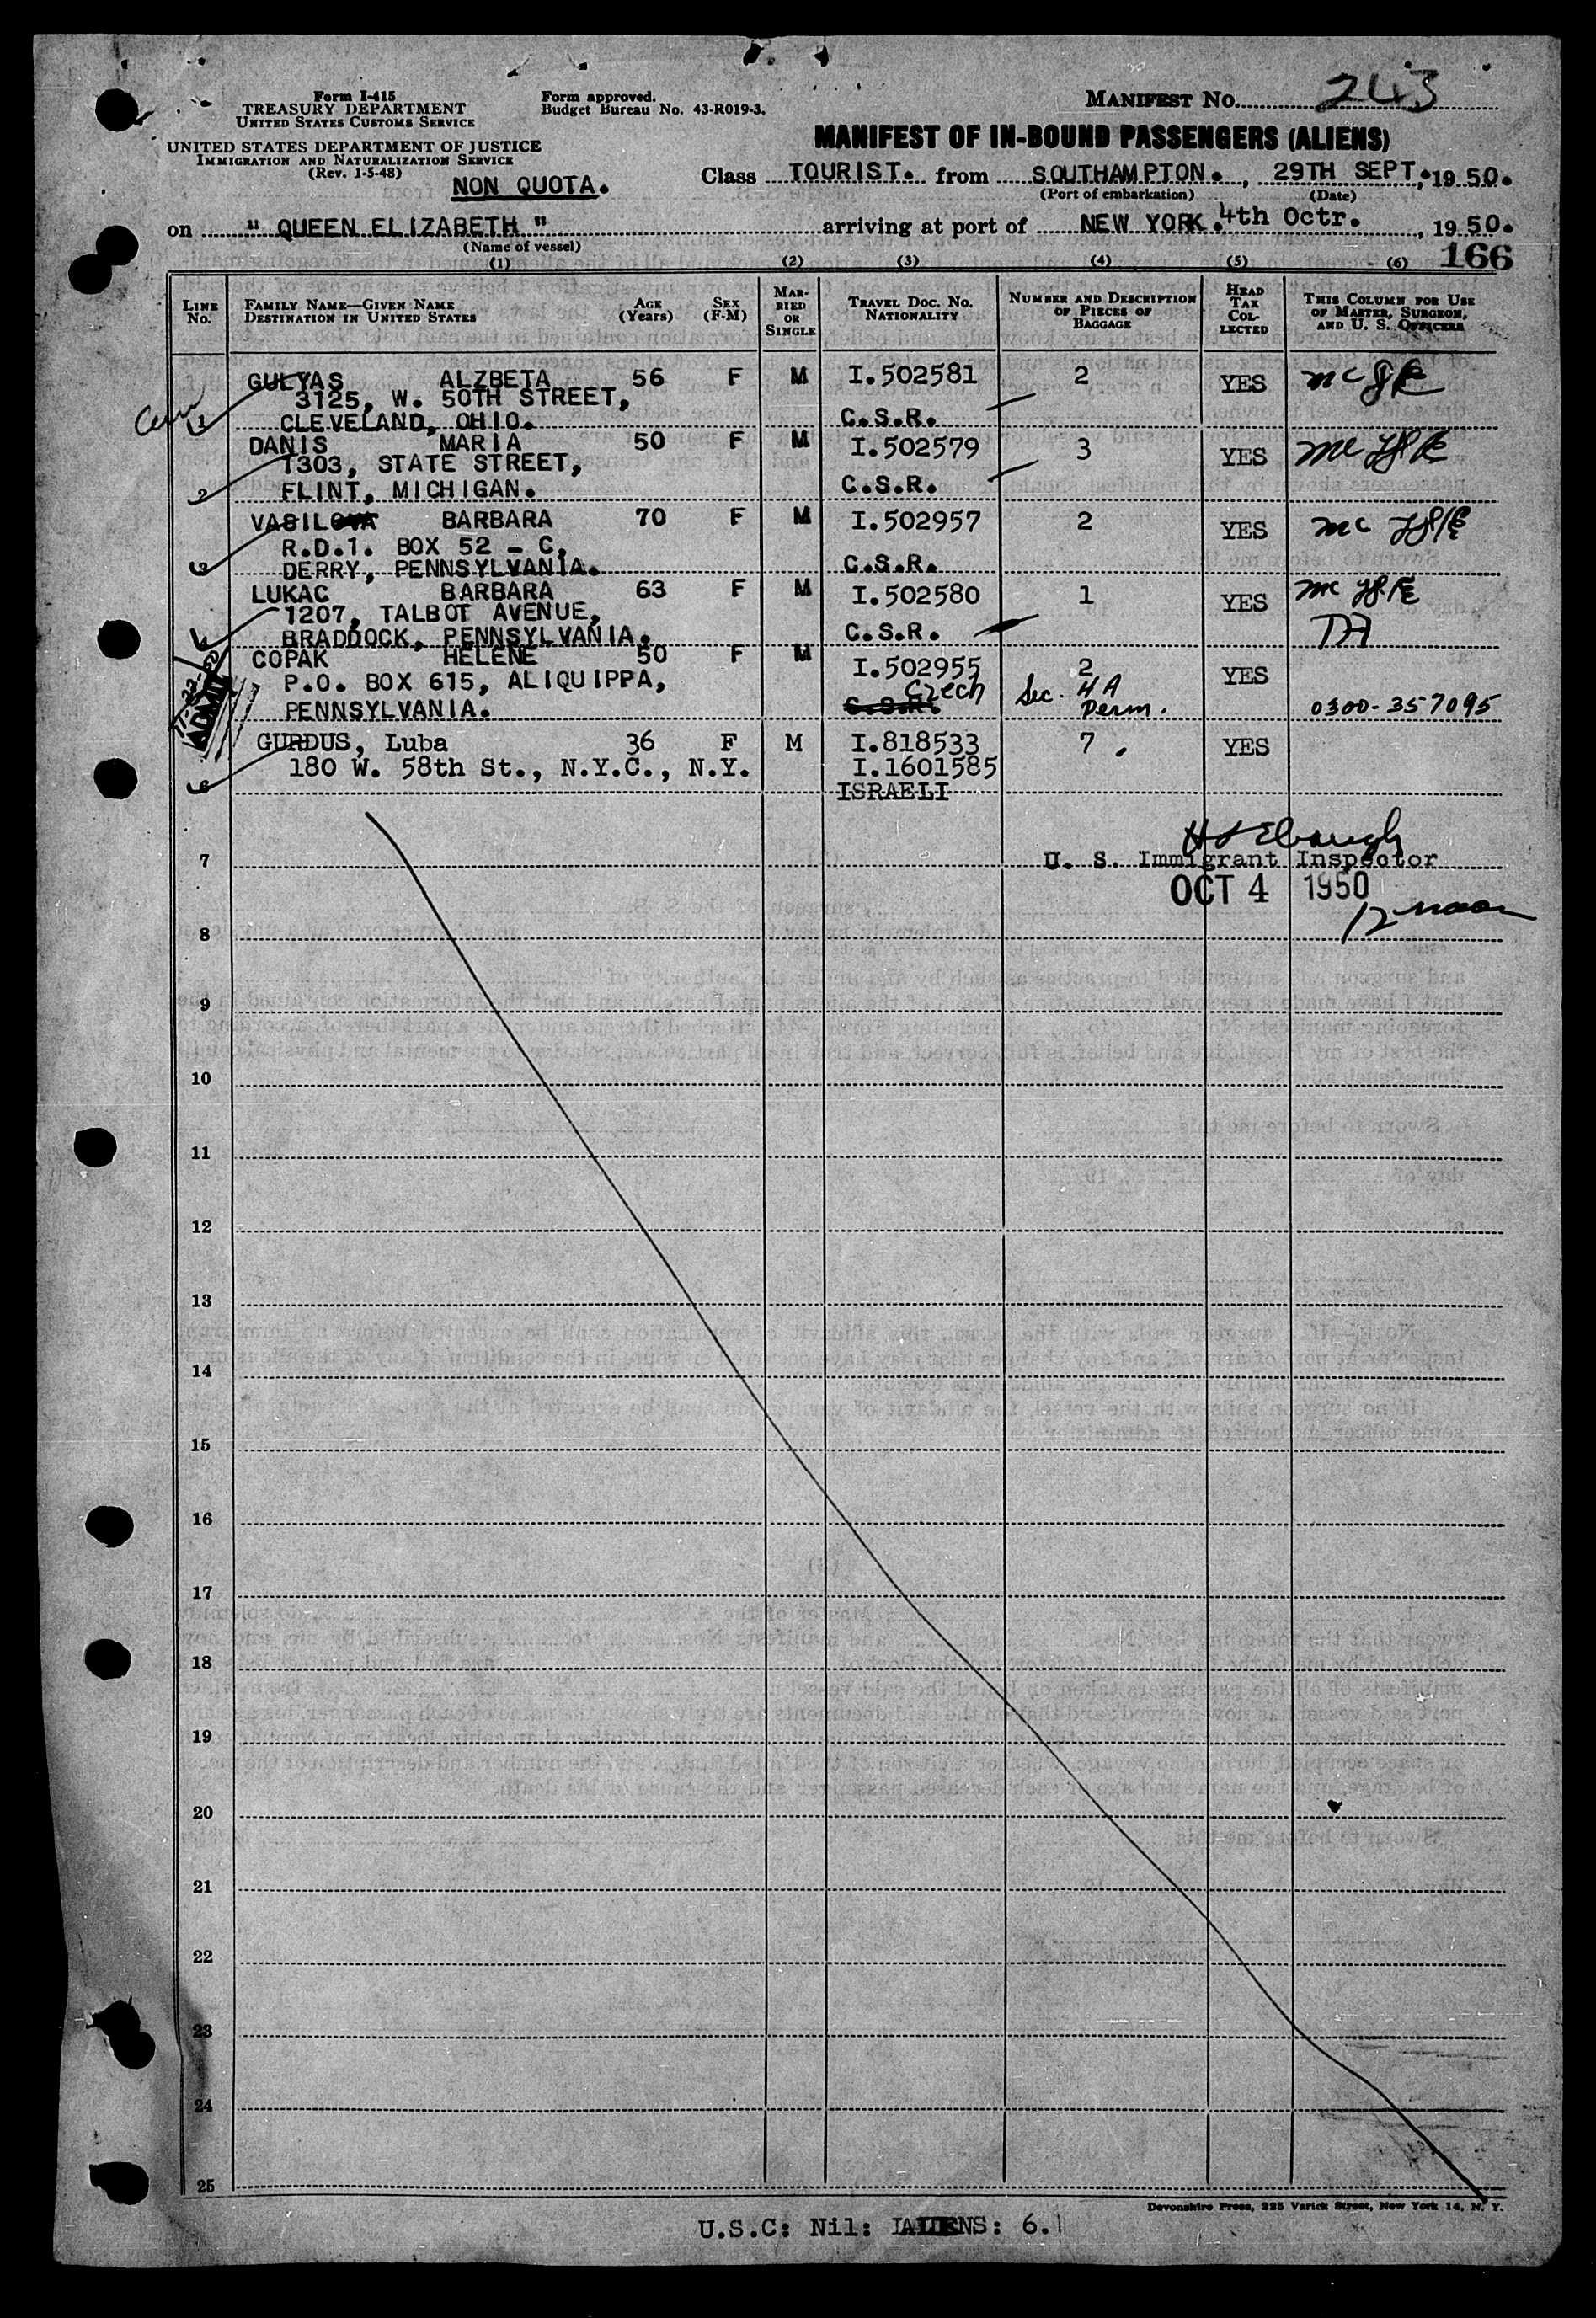 Form I-415
TREASURY DEPARTMENT
UNITED STATES CUSTOMS SERVICE
UNITED STATES DEPARTMENT OF JUSTICE
IMMIGRATION AND NATURALIZATION SERVICE
(Rev. 1-5-48)
Form approved.
Budget Bureau No. 43-R019-3.
NON QUOTA.
MANIFEST NO. 243
MANIFEST OF IN-BOUND PASSENGERS (ALIENS)
Class TOURIST. from SOUTHAMPTON., 29TH SEPT., 1950.
(Port of embarkation) (Date)
on " QUEEN ELIZABETH " arriving at port of NEW YORK. 4th Octr., 1950.
(Name of vessel)
166
(1) (2) (3) (4) (5) (6)
LINE NO. FAMILY NAME—GIVEN NAME DESTINATION IN UNITED STATES AGE (Years) SEX (F-M) MARRIED OR SINGLE TRAVEL DOC. NO. NATIONALITY NUMBER AND DESCRIPTION OF PIECES OF BAGGAGE HEAD TAX COLLECTED THIS COLUMN FOR USE OF MASTER, SURGEON, AND U. S. OFFICERS
1 GULYAS ALZBETA 56 F M I.502581 2 YES
3125, W. 50TH STREET,
CLEVELAND, OHIO. C.S.R.
2 DANIS MARIA 50 F M I.502579 3 YES
1303, STATE STREET,
FLINT, MICHIGAN. C.S.R.
3 VASILOVA BARBARA 70 F M I.502957 2 YES
R.D.1. BOX 52 - C,
DERRY, PENNSYLVANIA. C.S.R.
LUKAC BARBARA 63 F M I.502580 1 YES
1207, TALBOT AVENUE,
BRADDOCK, PENNSYLVANIA. C.S.R.
COPAK HELENE 50 F M I.502955 2 YES
P.O. BOX 615, ALIQUIPPA, Czech Sec. 4A
PENNSYLVANIA. C.S.R. Perm. 0300-357095
6 GURDUS, Luba 36 F M I.818533 7 YES
180 W. 58th St., N.Y.C., N.Y. I.1601585
ISRAELI
7 U. S. Immigrant Inspector
OCT 4 1950
12 noon
8
9
10
11
12
13
14
15
16
17
18
19
20
21
22
23
24
25
Devonshire Press, 225 Varick Street, New York 14, N. Y.
U.S.C: Nil: ALIENS: 6.